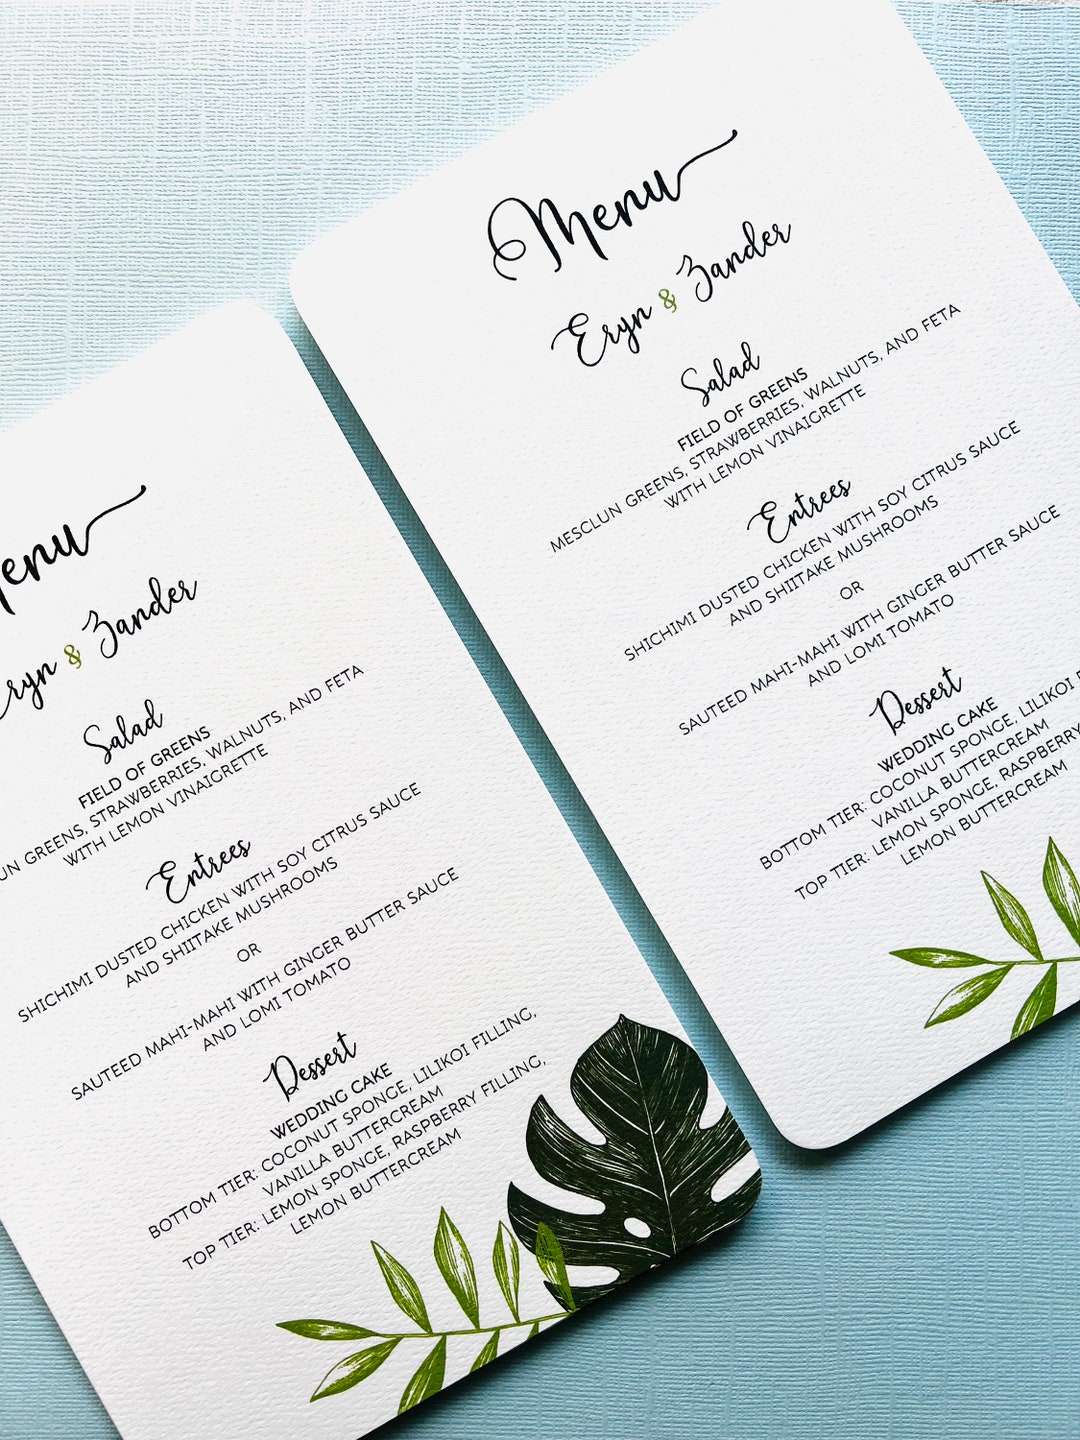 Menu
Eryn & Zander
Salad
FIELD OF GREENS
MESCLUN GREENS, STRAWBERRIES, WALNUTS, AND FETA
WITH LEMON VINAIGRETTE
Entrees
SHICHIMI DUSTED CHICKEN WITH SOY CITRUS SAUCE
AND SHIITAKE MUSHROOMS
OR
SAUTEED MAHI-MAHI WITH GINGER BUTTER SAUCE
AND LOMI TOMATO
Dessert
WEDDING CAKE
BOTTOM TIER: COCONUT SPONGE, LILIKOI
VANILLA BUTTERCREAM
TOP TIER: LEMON SPONGE, RASPBERRY
LEMON BUTTERCREAM
enu
ryn & Zander
Salad
FIELD OF GREENS
UN GREENS, STRAWBERRIES, WALNUTS, AND FETA
WITH LEMON VINAIGRETTE
Entrees
SHICHIMI DUSTED CHICKEN WITH SOY CITRUS SAUCE
AND SHIITAKE MUSHROOMS
OR
SAUTEED MAHI-MAHI WITH GINGER BUTTER SAUCE
AND LOMI TOMATO
Dessert
WEDDING CAKE
BOTTOM TIER: COCONUT SPONGE, LILIKOI FILLING,
VANILLA BUTTERCREAM
TOP TIER: LEMON SPONGE, RASPBERRY FILLING,
LEMON BUTTERCREAM